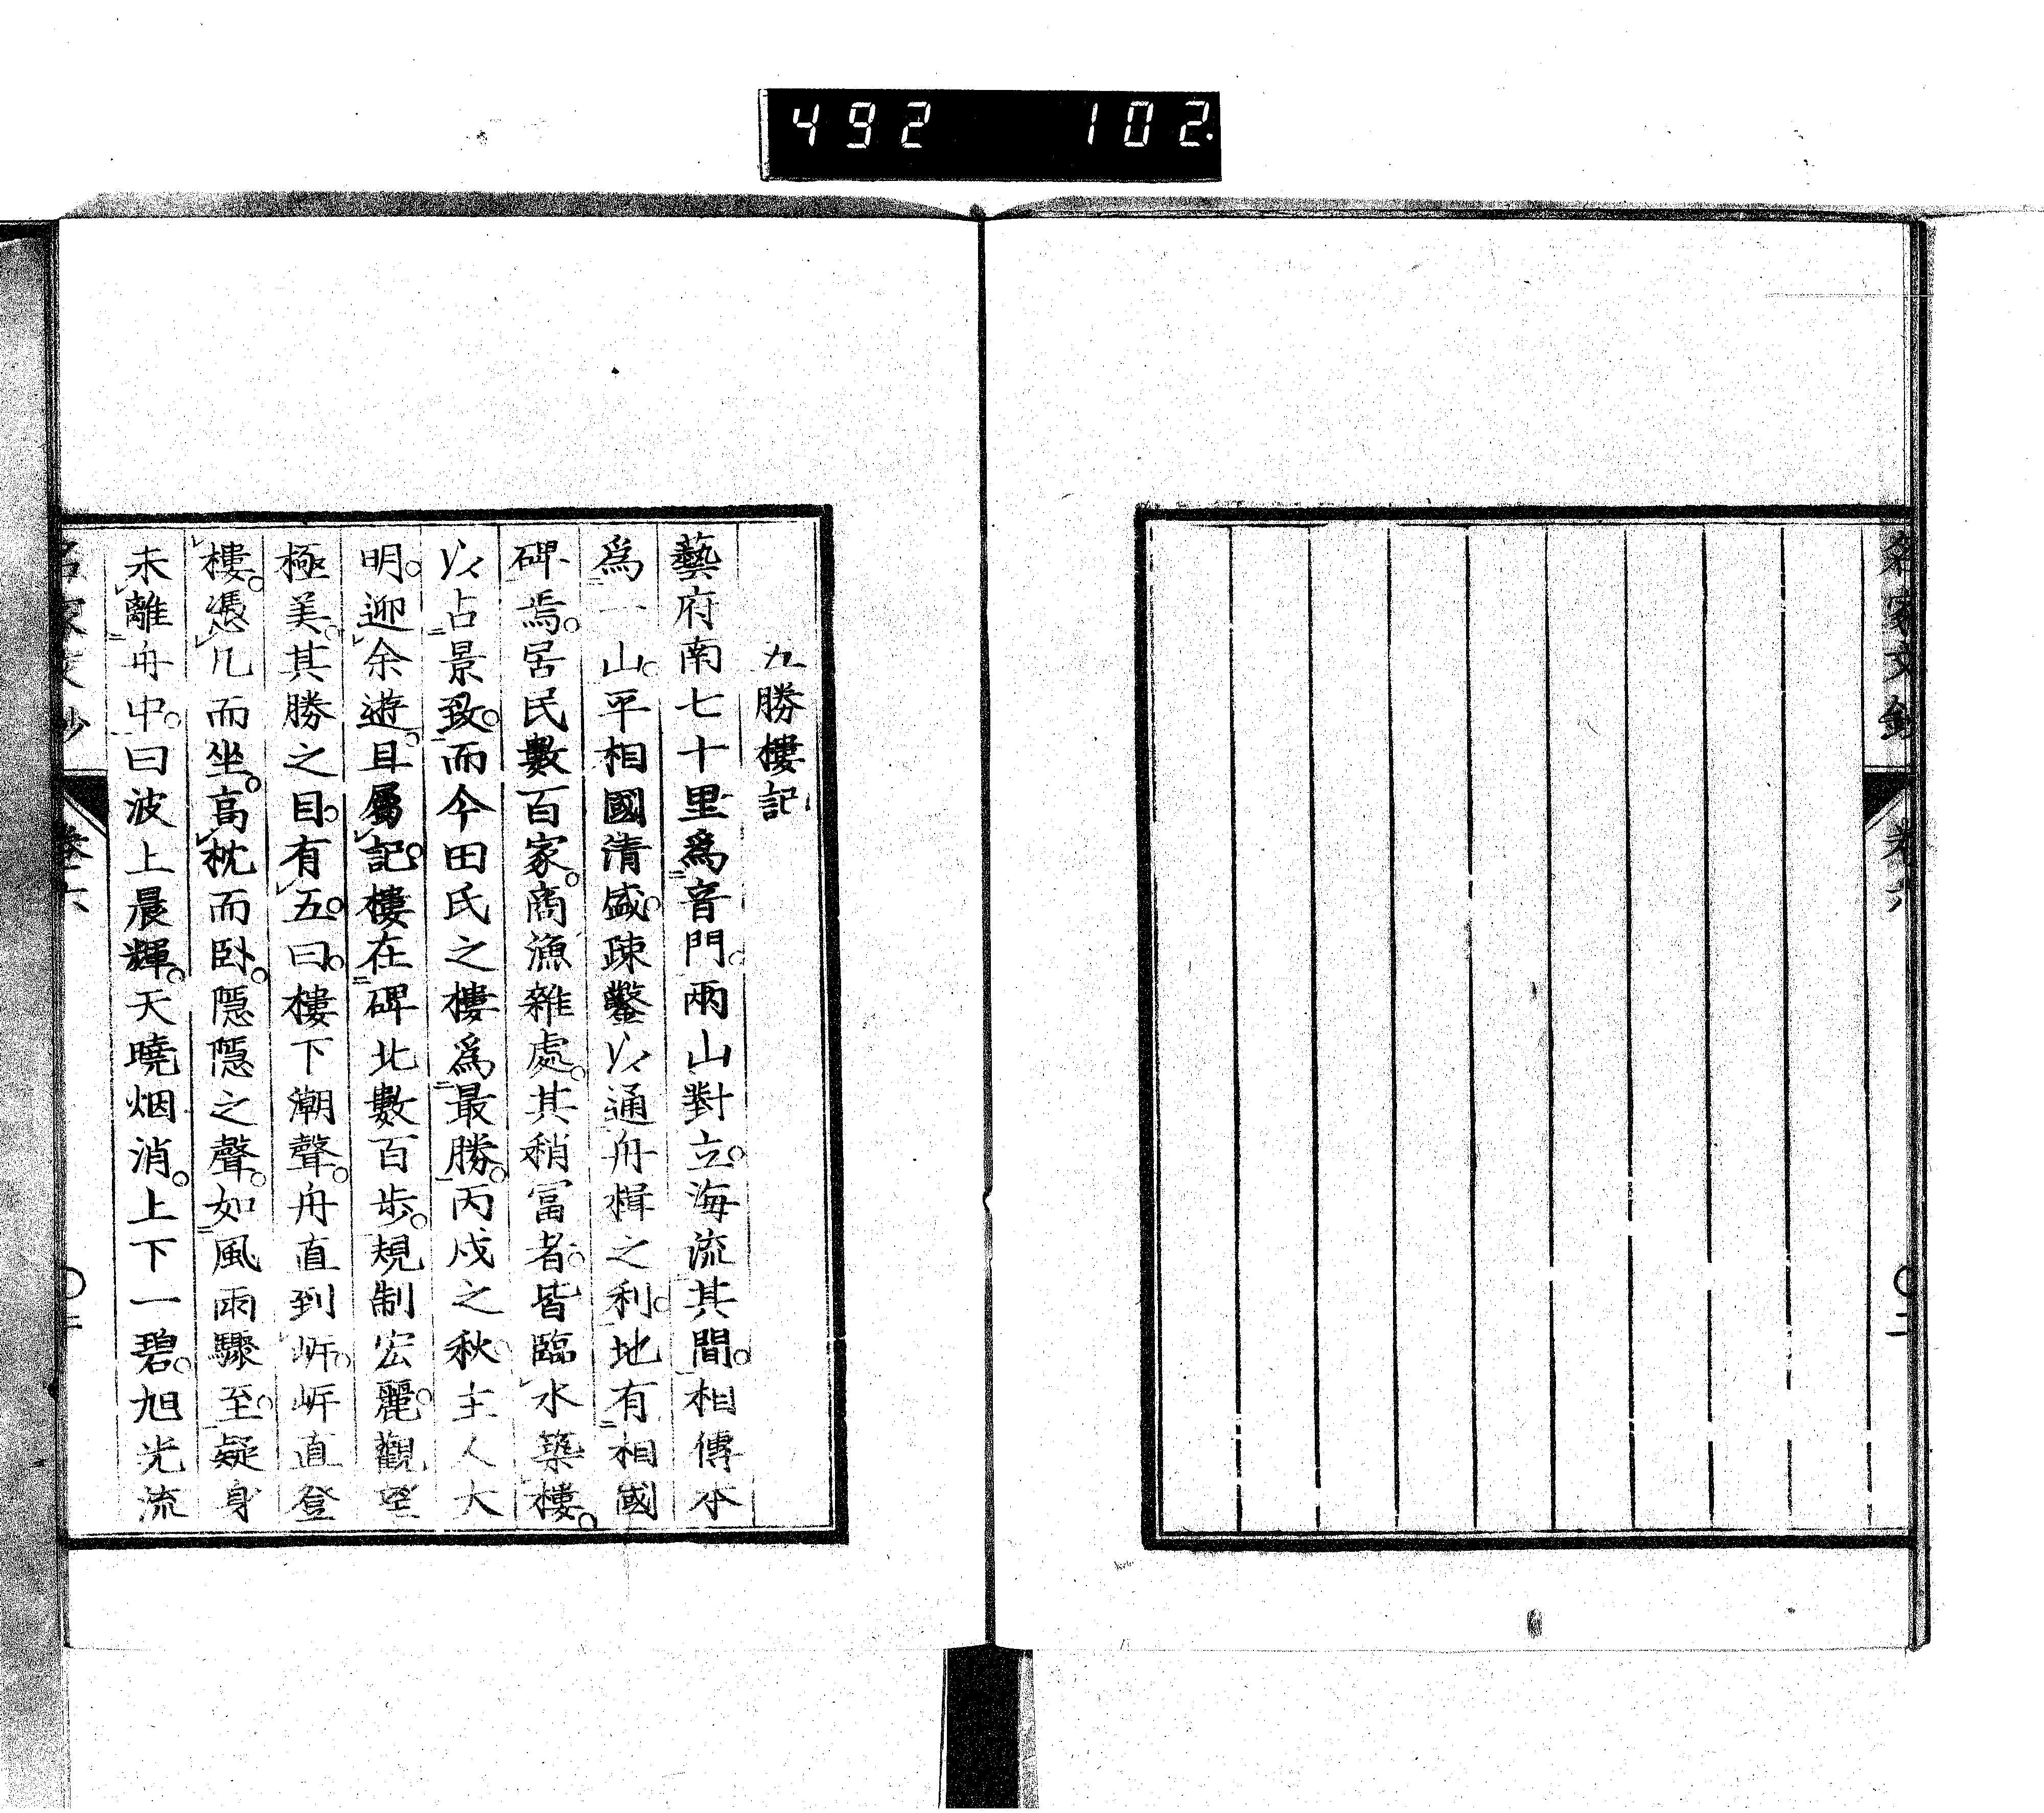 492 102.
名家文鈔 卷六 〇二
九勝樓記
藝府南七十里爲音門。兩山對立。海流其間。相傳本
爲一山。平相國清盛。疎鑿以通舟楫之利。地有相國
碑焉。居民數百家。商漁雜處。其稍冨者。皆臨水築樓。
以占景致。而今田氏之樓爲最勝。丙戍之秋。主人大
明。迎余遊。且屬記。樓在碑北數百歩。規制宏麗。觀望
極美。其勝之目。有五。曰。樓下潮聲。舟直到岍。岍直登
樓。憑几而坐。高枕而臥。隱隱之聲。如風雨驟至。疑身
未離舟中。曰波上晨輝。天曉烟消。上下一碧。旭光流
名家文鈔 卷六 〇二